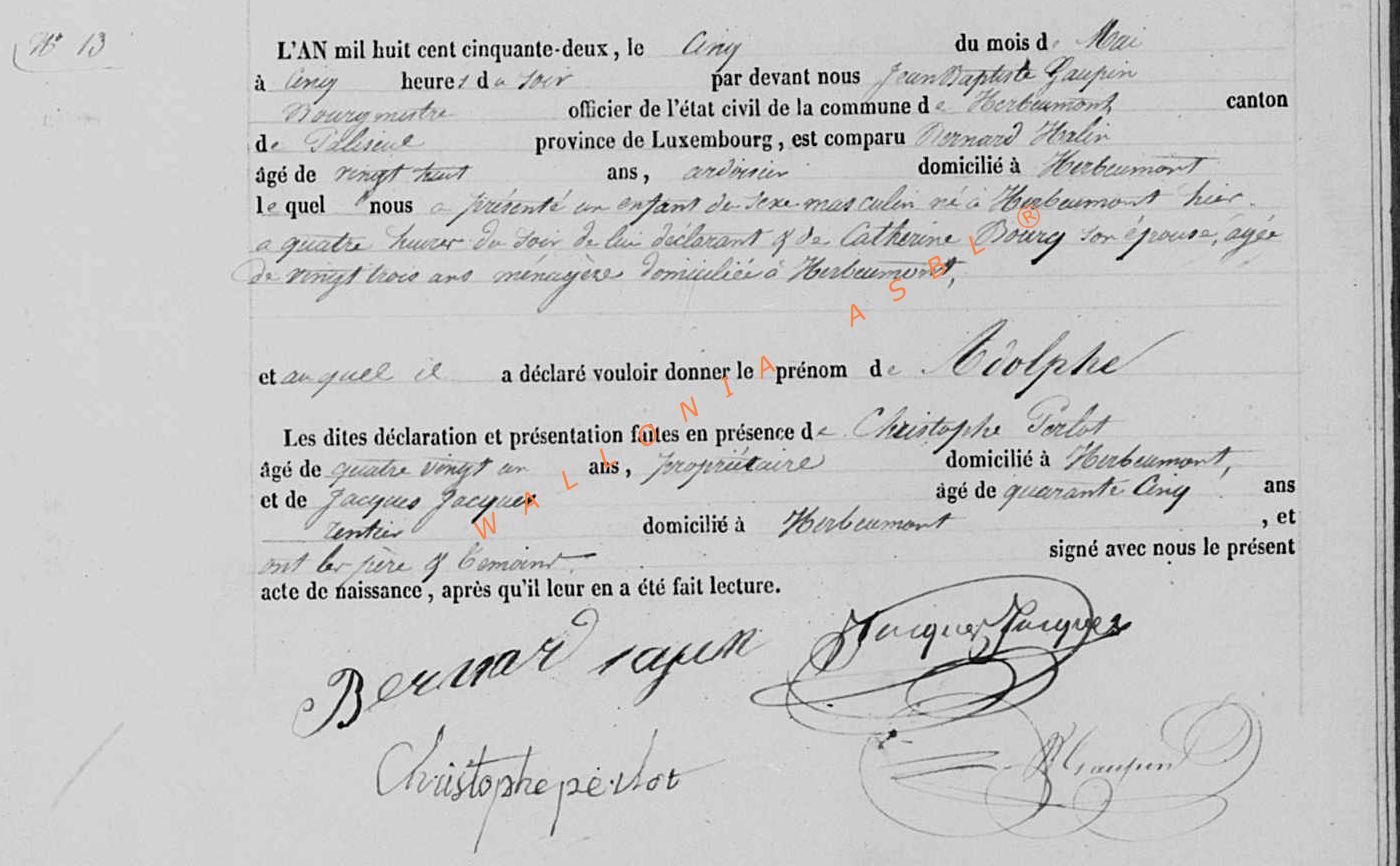 N° 13
L'AN mil huit cent cinquante-deux, le Cinq du mois de Mai
à Cinq heures du soir par devant nous Jean Baptiste Gaupin
Bourgmestre officier de l'état civil de la commune de Herbeumont canton
de Paliseul province de Luxembourg, est comparu Bernard Halin
âgé de vingt huit ans, ardoisier domicilié à Herbeumont
lequel nous a présenté un enfant du sexe masculin né à Herbeumont hier
a quatre heures du soir de lui déclarant & de Catherine Bourg son épouse, agée
de vingt trois ans ménagère domiciliée à Herbeumont,
et auquel il a déclaré vouloir donner le prénom de Adolphe
Les dites déclaration et présentation faites en présence de Christophe Perlot
âgé de quatre vingt un ans, propriétaire domicilié à Herbeumont,
et de Jacques Jacques âgé de quarante Cinq ans
rentier domicilié à Herbeumont, et
ont les père & temoins signé avec nous le présent
acte de naissance, après qu'il leur en a été fait lecture.
Bernard Jacques Jacques
Christophe perlot Gaupin
WALLONIA ASBL ®